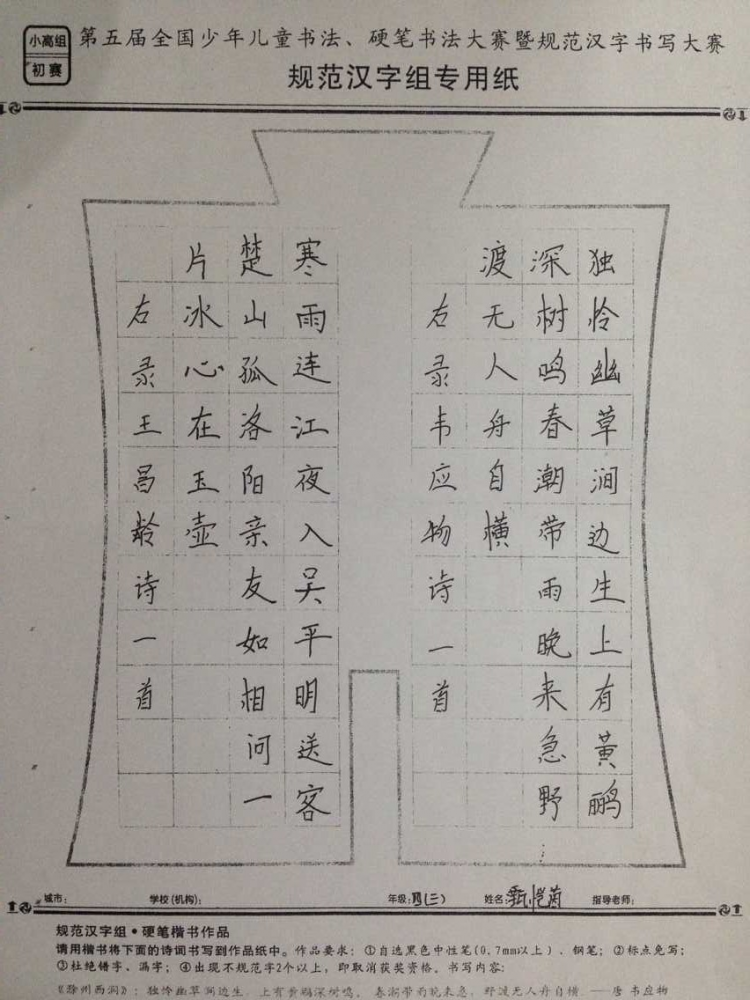 小高组
初赛
第五届全国少年儿童书法、硬笔书法大赛暨规范汉字书写大赛
规范汉字组专用纸
独怜幽草涧边生上有黄鹂
深树鸣春潮带雨晚来急野
渡无人舟自横
右录韦应物诗一首
寒雨连江夜入吴平明送客
楚山孤洛阳亲友如相问一
片冰心在玉壶
右录王昌龄诗一首
城市: 学校(机构): 年级:四(三) 姓名:甄恺茵 指导老师:
规范汉字组·硬笔楷书作品
请用楷书将下面的诗词书写到作品纸中。作品要求:①自选黑色中性笔(0.7mm以上)、钢笔;②标点免写;
③杜绝错字、漏字;④出现不规范字2个以上,即取消获奖资格。书写内容:
《滁州西涧》:独怜幽草涧边生,上有黄鹂深树鸣。春潮带雨晚来急,野渡无人舟自横。——唐 韦应物